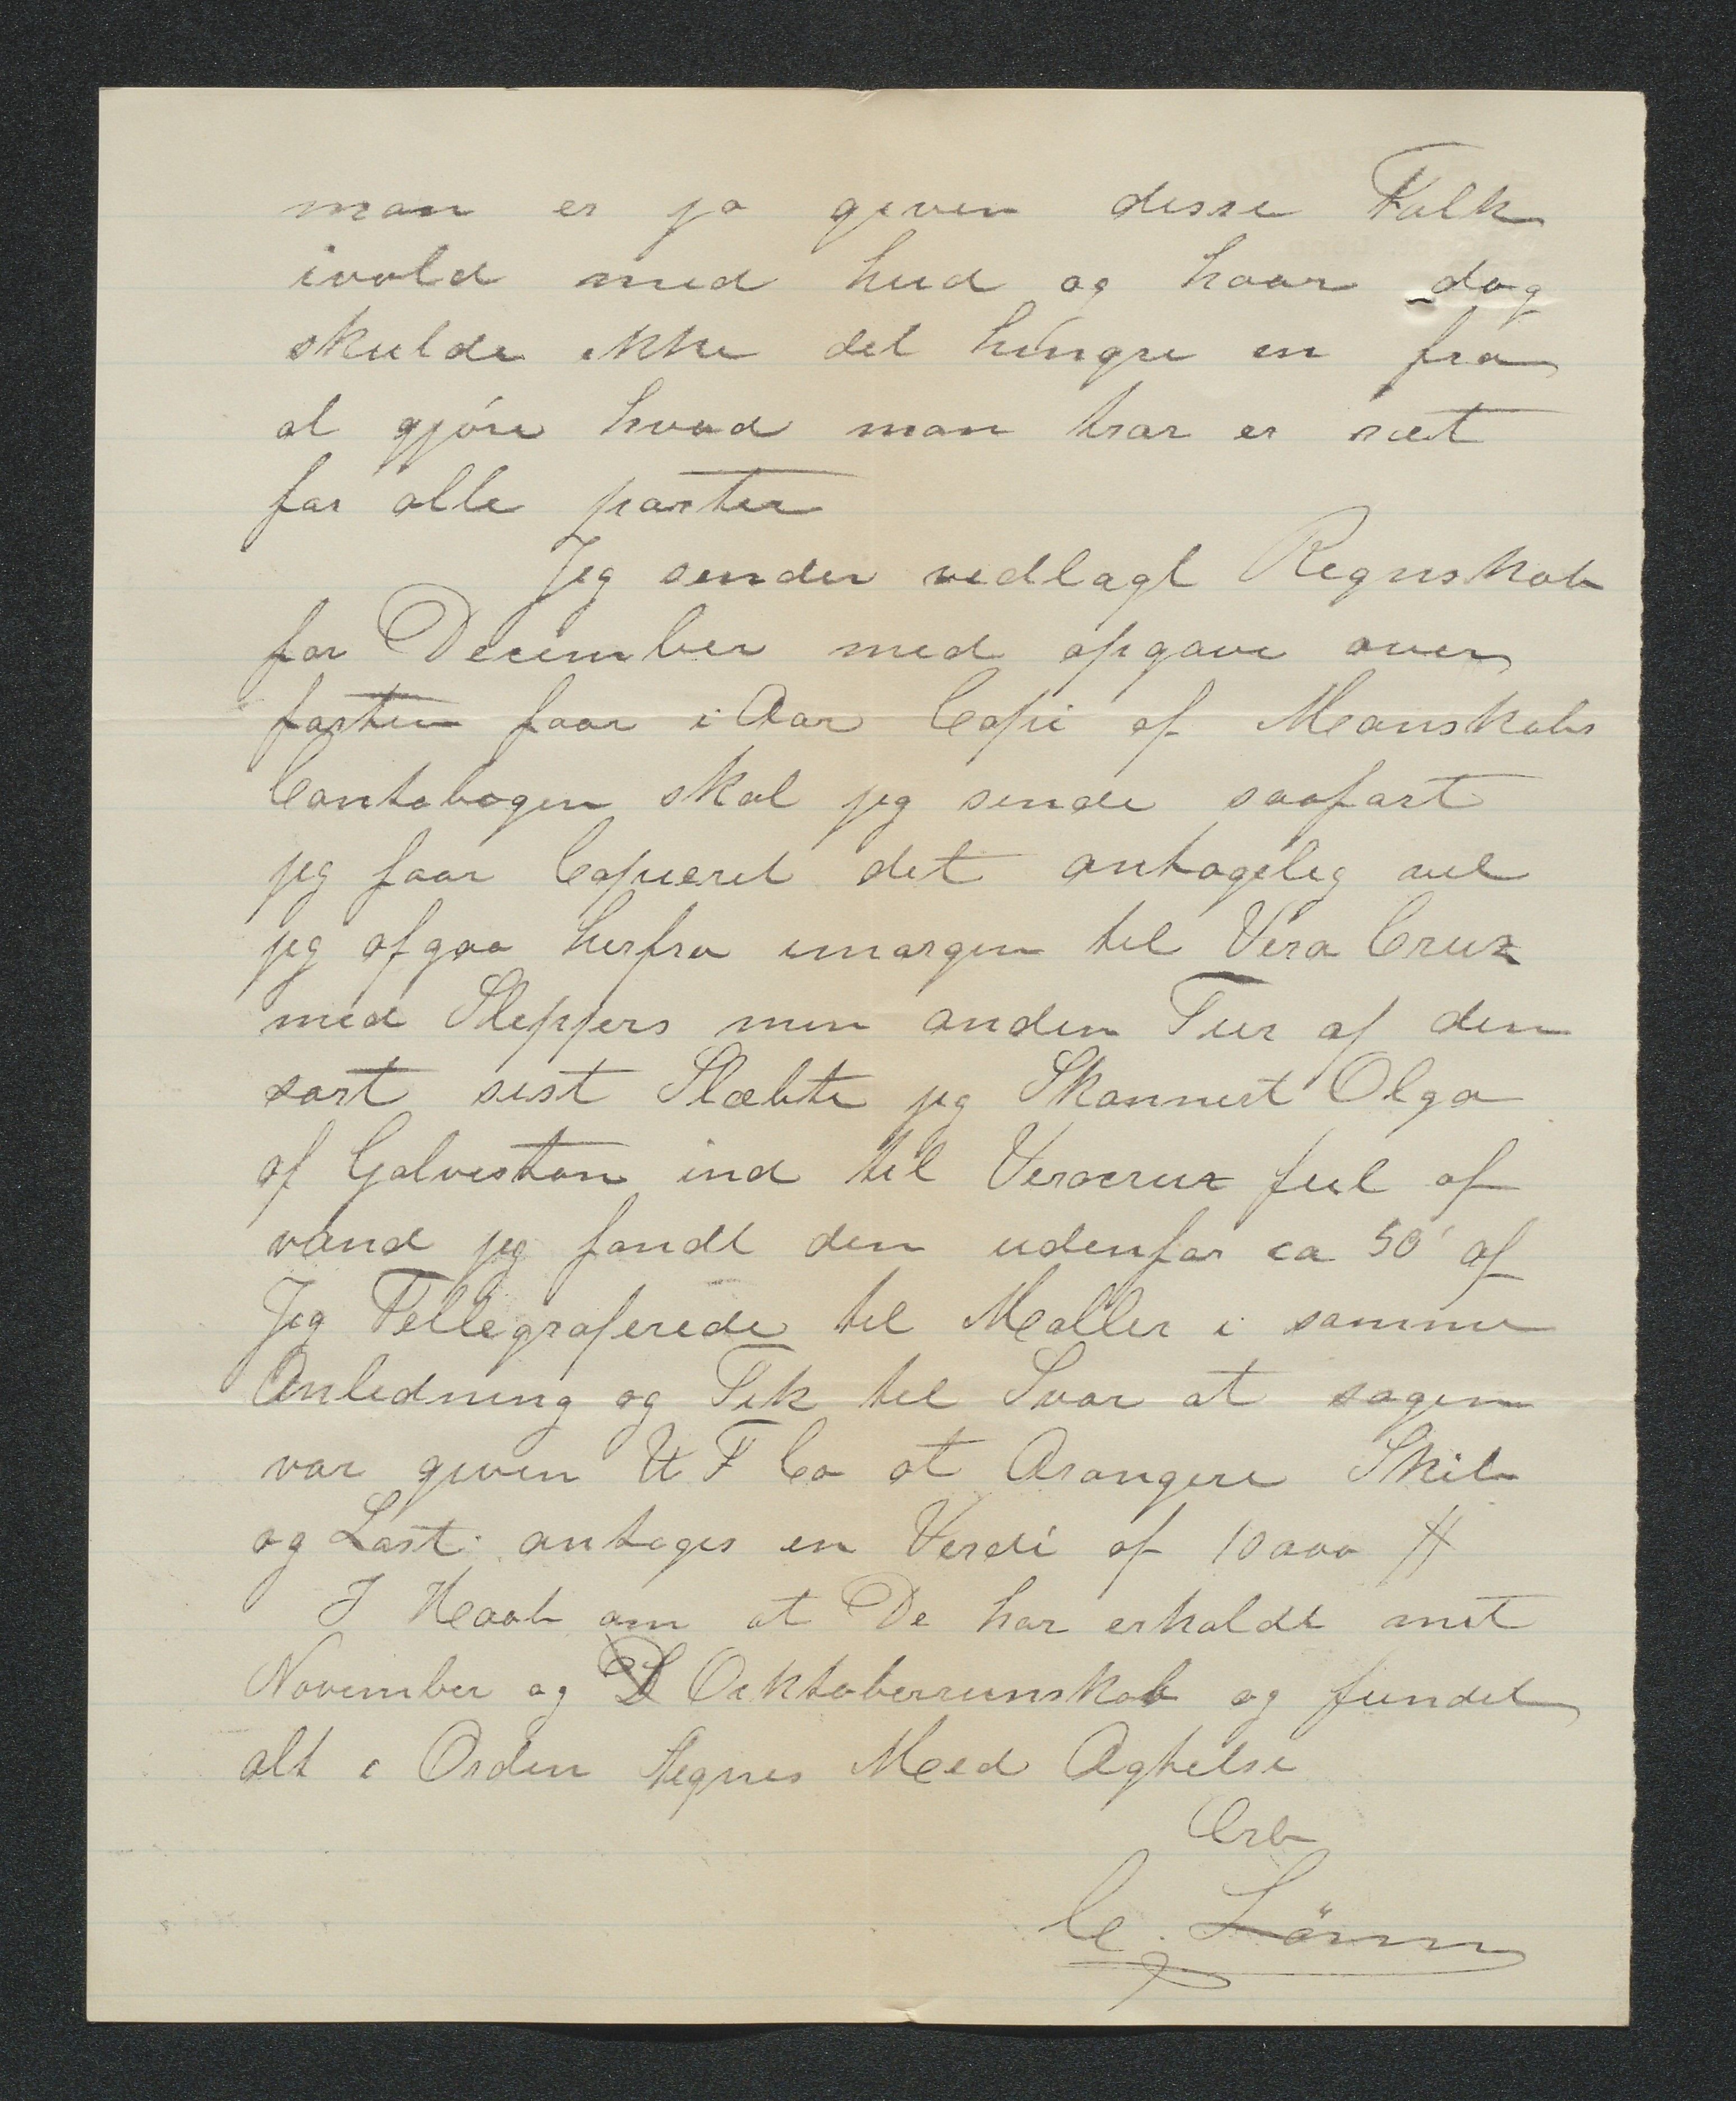 man er jo given disse Folk
ivold med hud og haar dog
skulde ikke det hingre en fra
at gjöre hvad man tror er ræt
for alle parter
Jeg sender vedlagt Regnskab
for December med opgave over
farten faar i Aar Copi af Manskabs
Contobogen skal jeg sende saafort
jeg faar Copieret det antagelig vel
jeg afgaa herfra imorgen til Vera Cruz
med Sleppers min anden Tur af den
sort sist Slæbte jeg Skonnert Olga
af Galveston ind til Veracruz ful af
vand jeg fandt den udenfor ca 50' af
Jeg Tellegraferede til Møller i samme
Anledning og Fik til Svar at sagen
var given U F Co at Arangere Skib
og Last antages en Verdi af 10000 #
I Haab om at De har erholdt mit
November og Ocktoberrunskab og fundet
alt i Orden tegnes Med Agtelse
Erb
C. Lönn